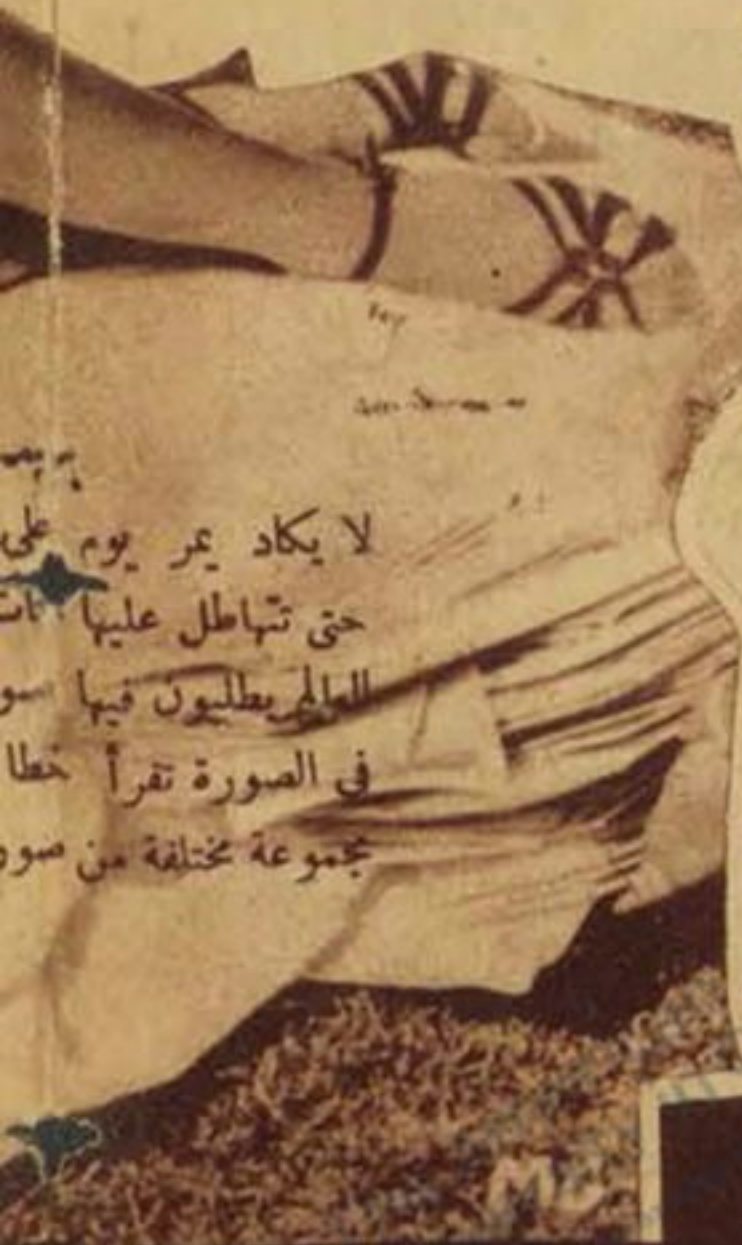 لا يكاد يمر يوم على
حتى تتهاطل عليها
العالم يطلبون فيها
في الصورة تقرأ خطا
مجموعة مختلفة من صور